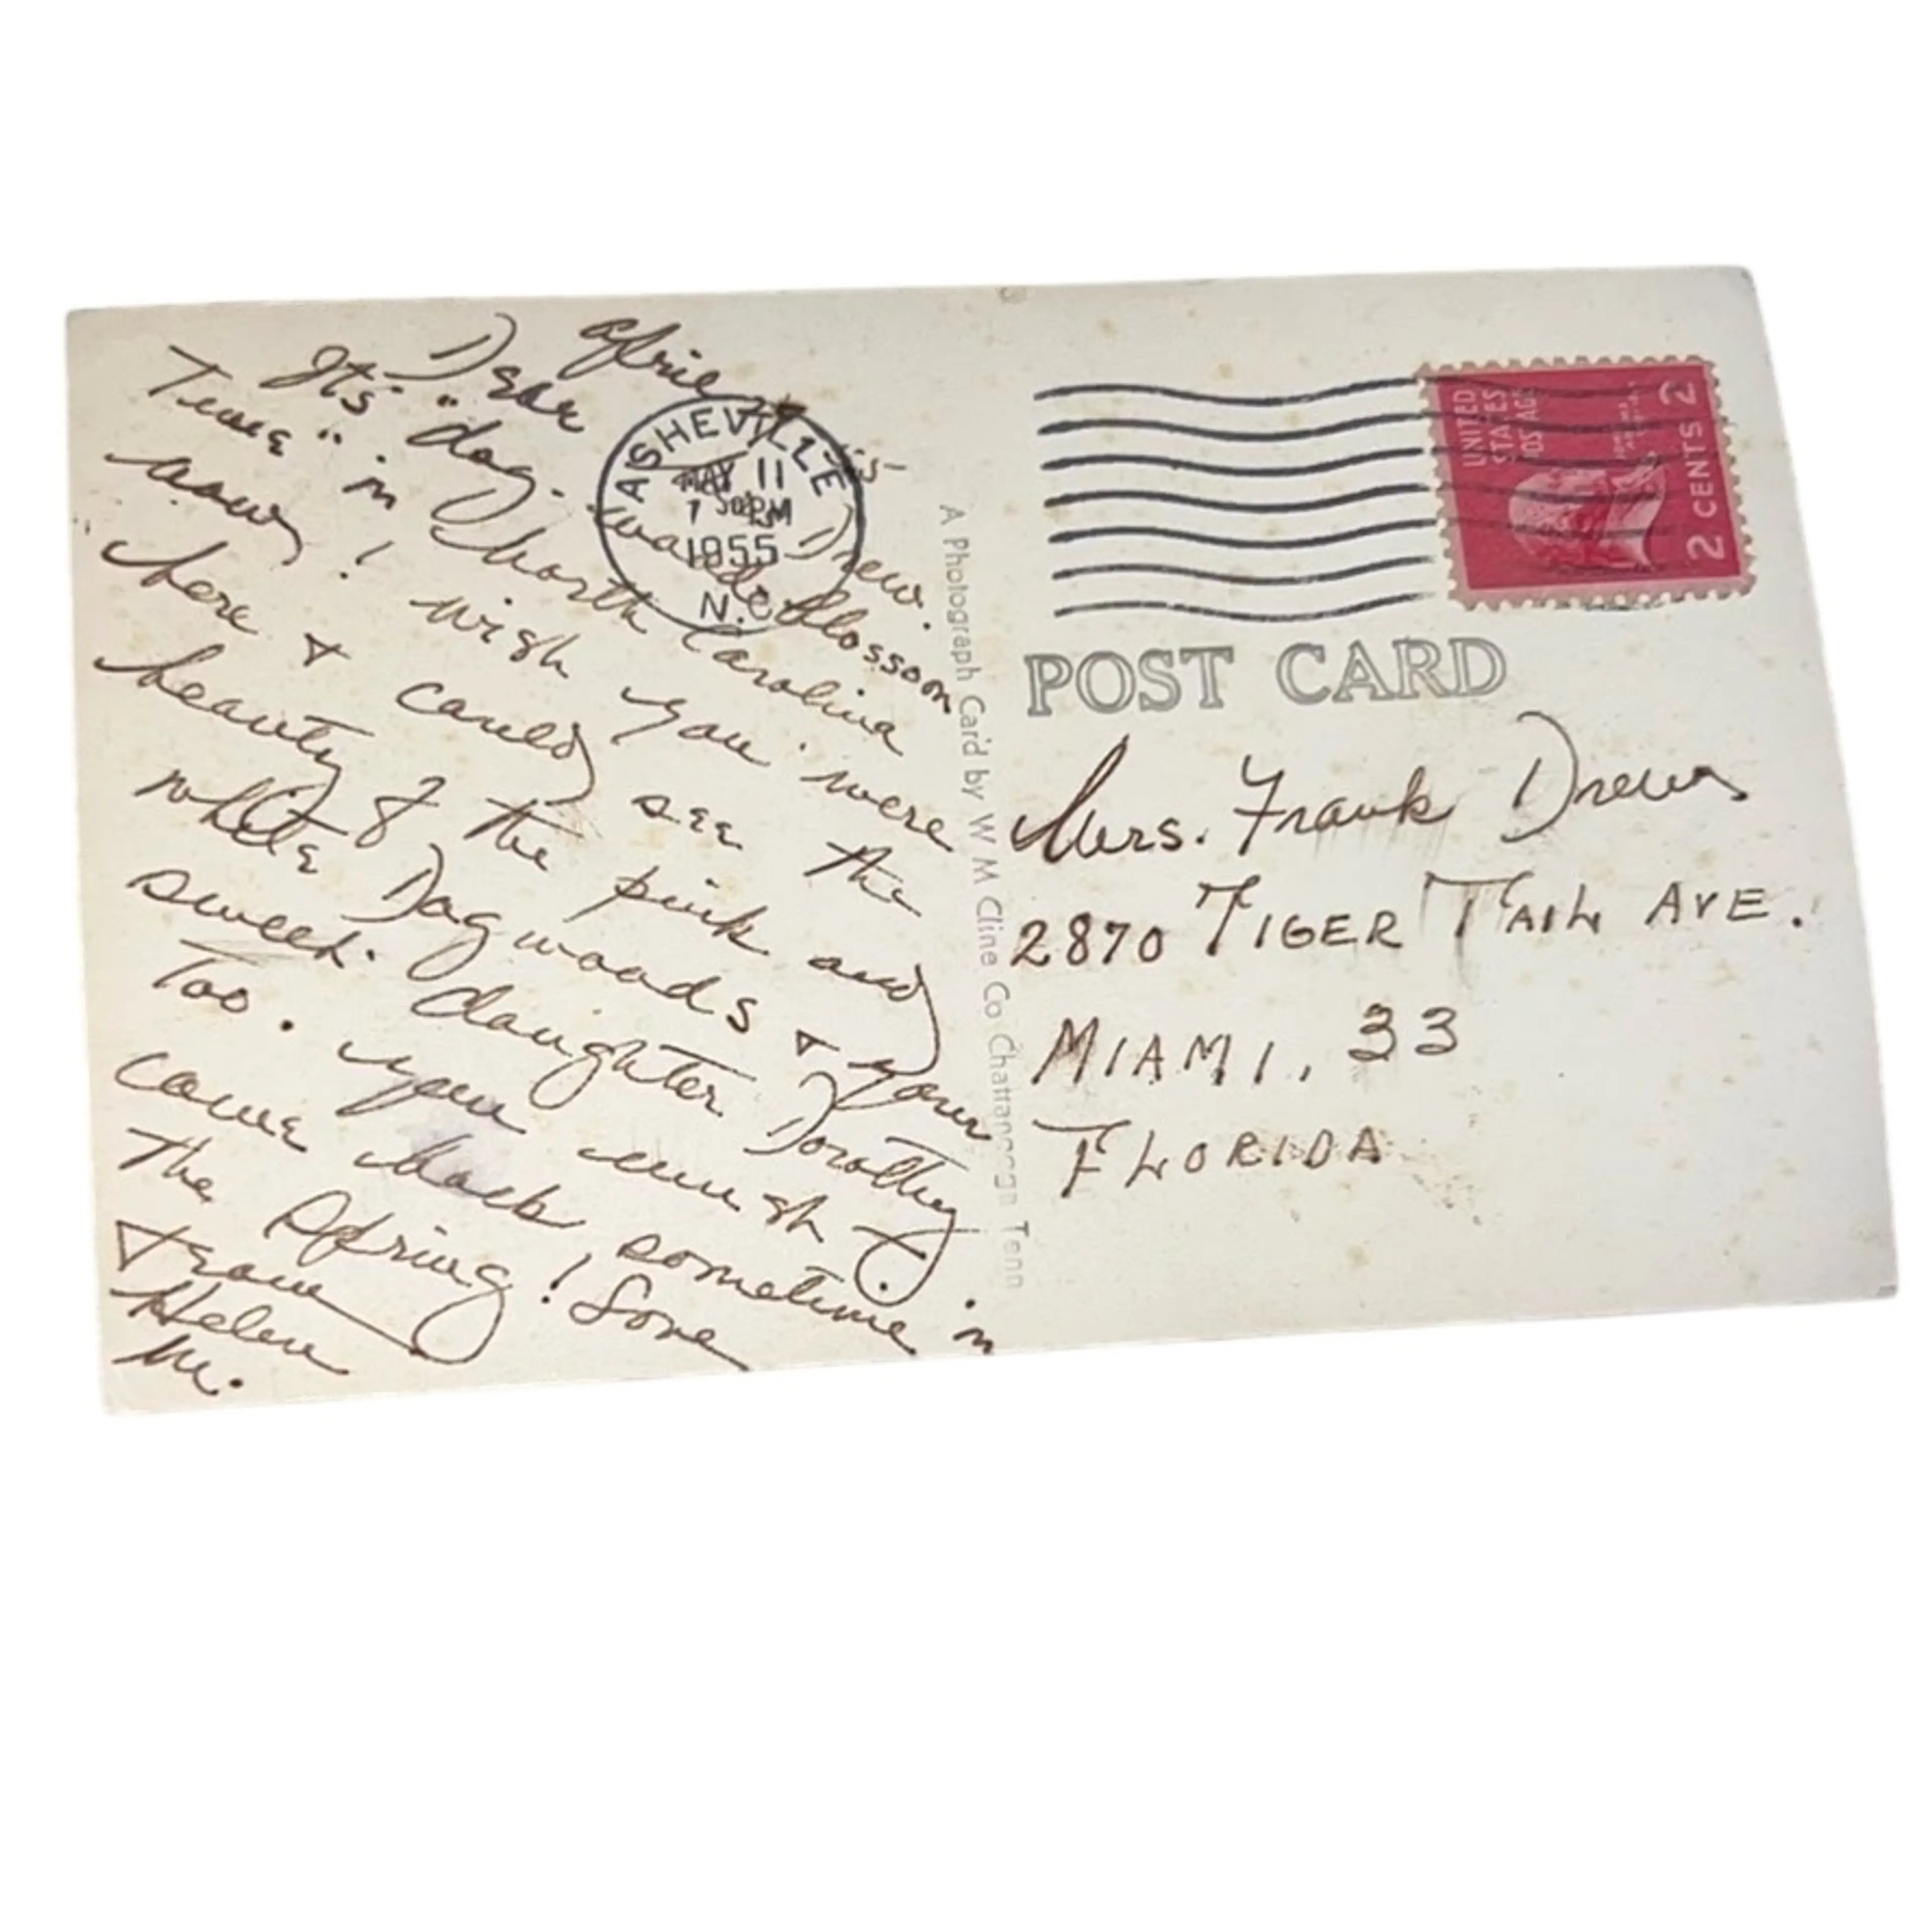 April
Dear Drew.
It's "dog-wood blossom
Time" in North Carolina
now! Wish you were
here & could see the
beauty of the pink and
white Dogwoods & your
sweet daughter Dorothy
Too. You must
come back sometime in
the Spring! Love
from
Helen
M.
ASHEVILLE
MAY 11
PM
1955
N.C.
A Photograph Card by W M Cline Co Chattanooga Tenn
UNITED
STATES
POSTAGE
2 CENTS 2
POST CARD
Mrs. Frank Drew
2870 TIGER TAIL AVE.
MIAMI, 33
FLORIDA